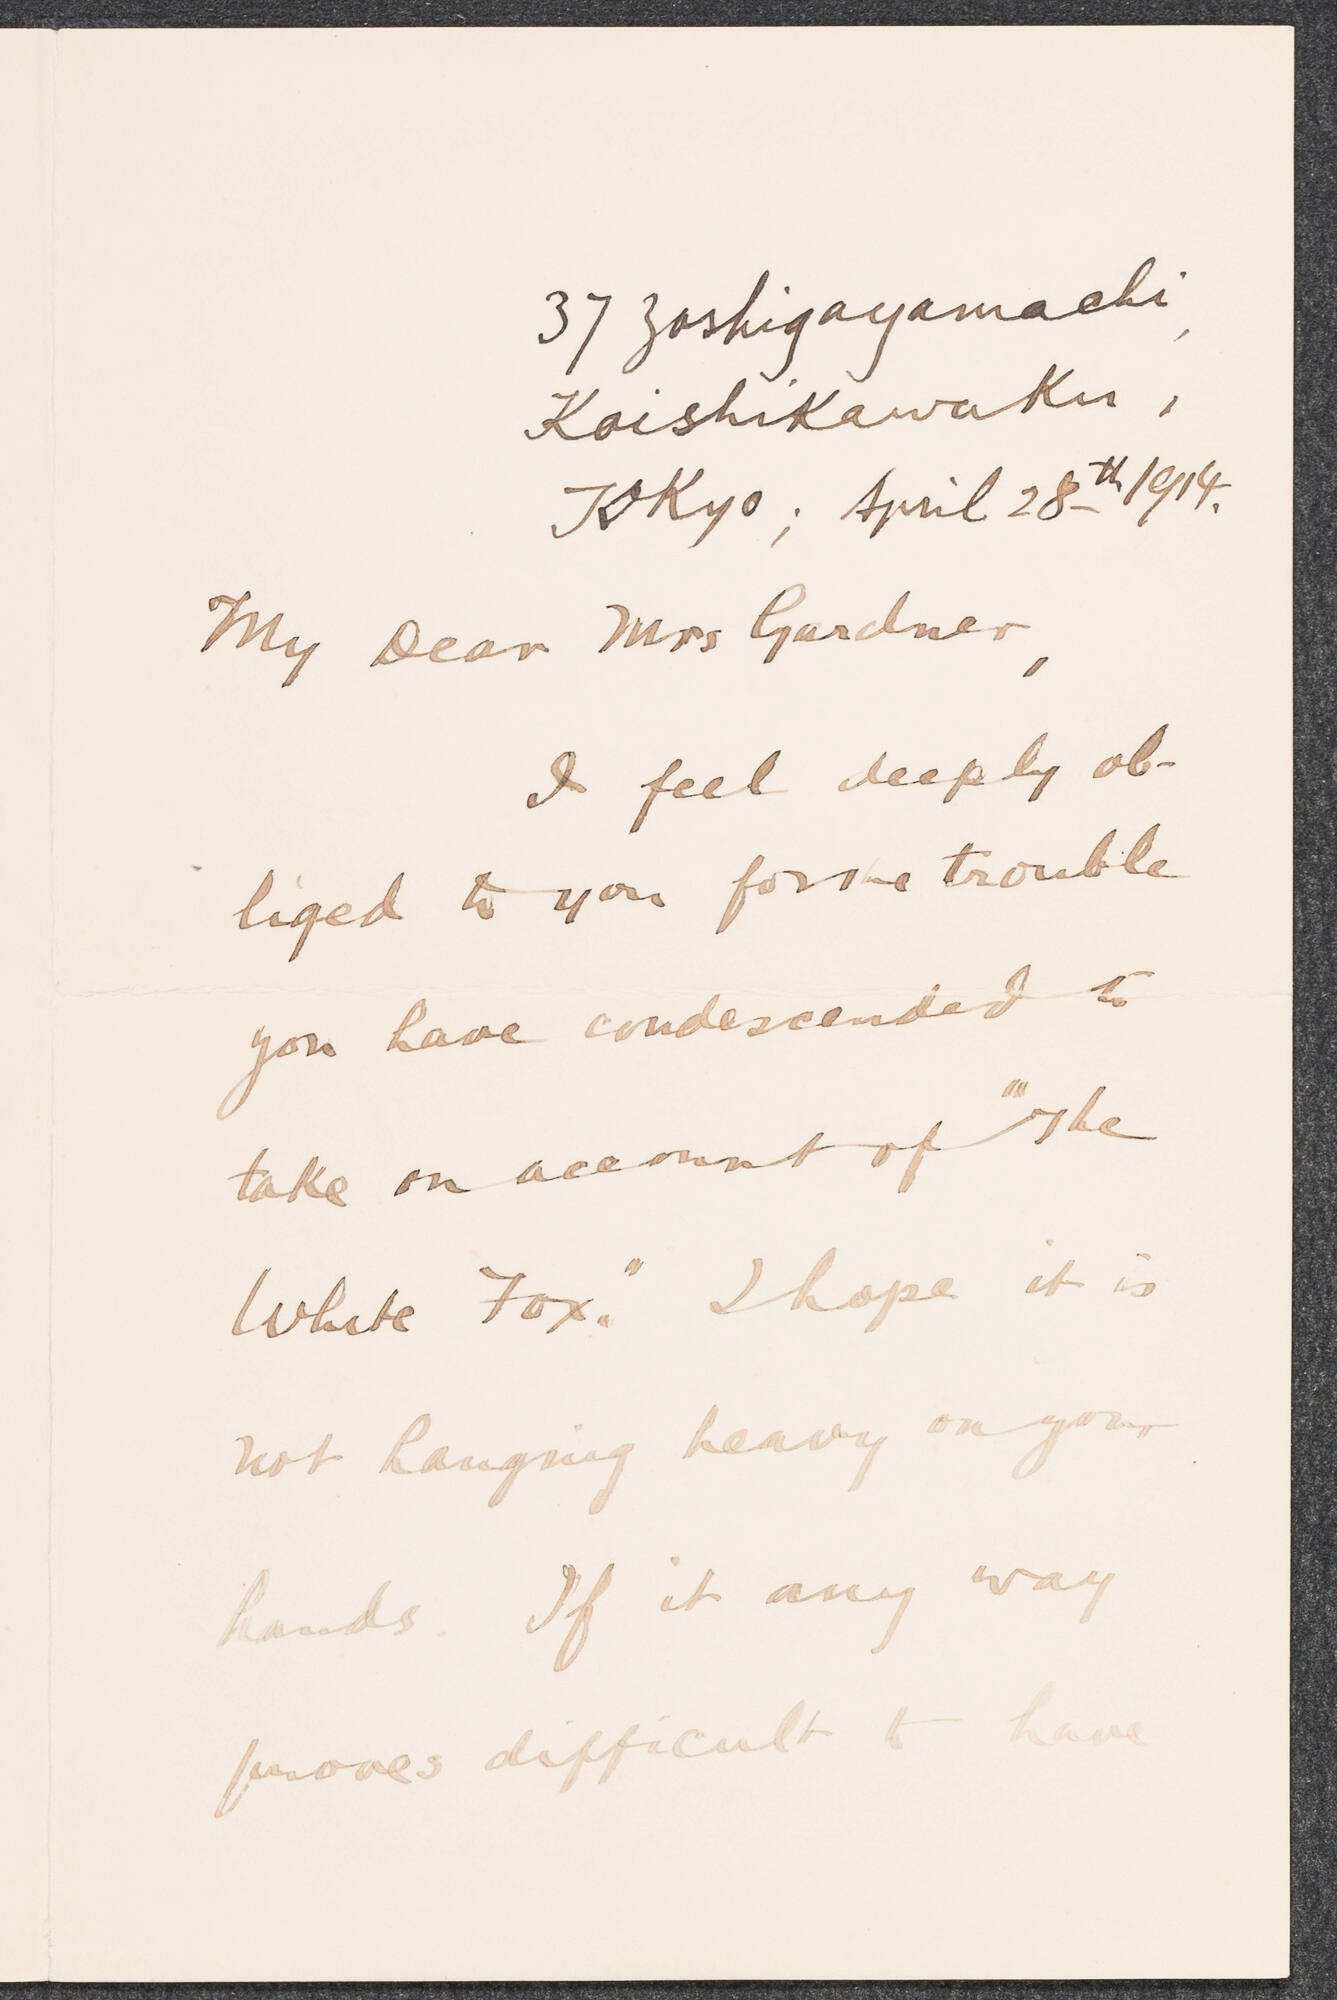 37 Zoshigayamachi,
Koishikawaku,
Tokyo; April 28th 1914.
My Dear Mrs Gardner,
I feel deeply ob-
liged to you for the trouble
you have condescended to
take on account of "The
White Fox." I hope it is
not hanging heavy on your
hands. If it any way
proves difficult to have